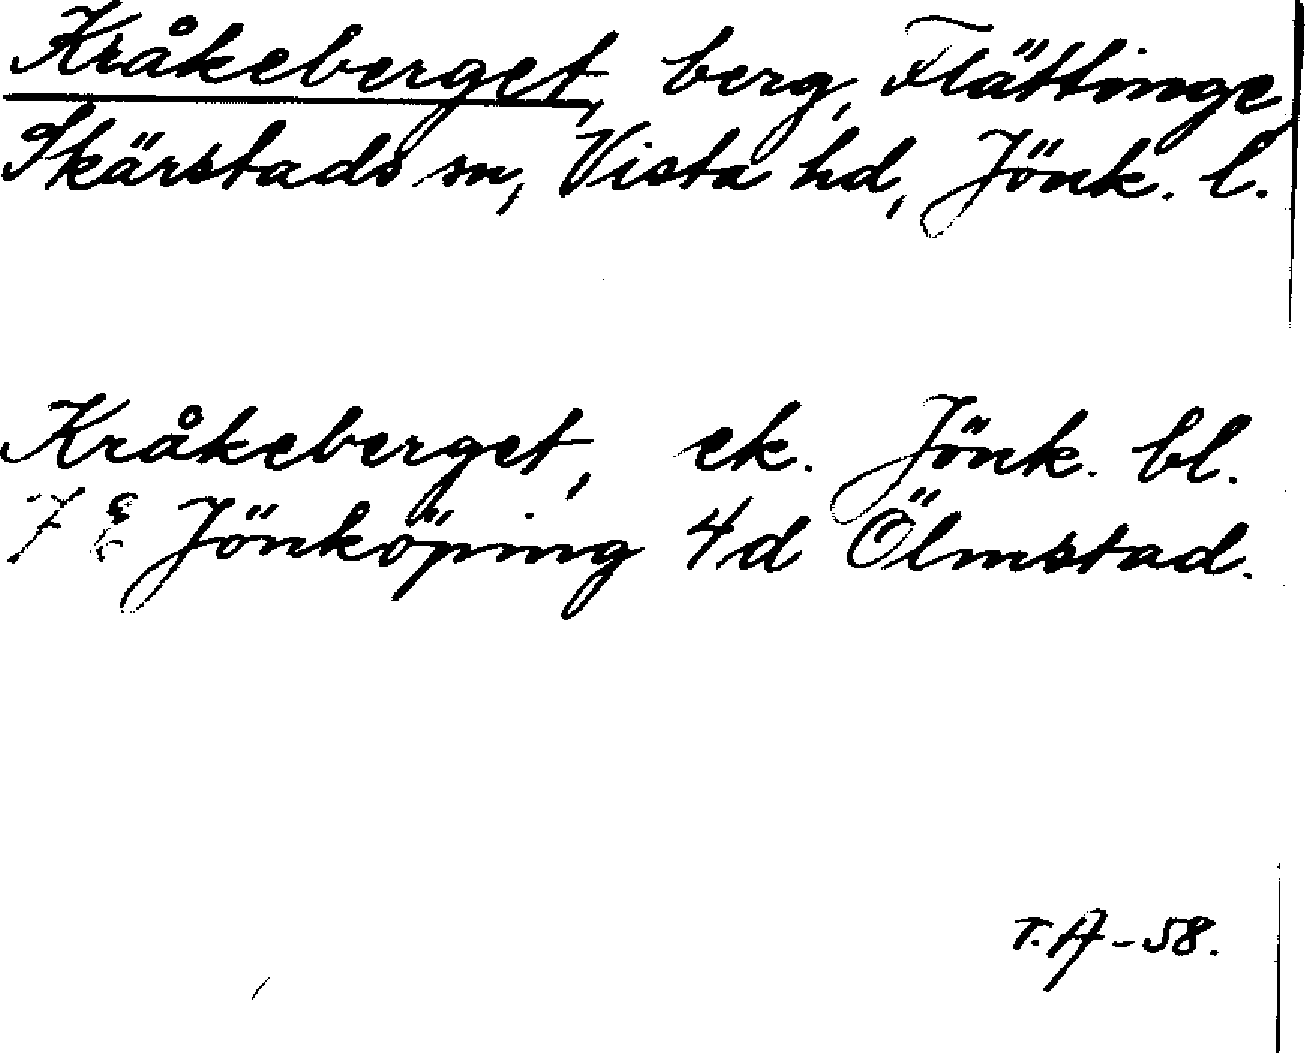 Kråkeberget, berg, Flättinge,
Skärstads sn, Vista hd, Jönk. l.
Kråkeberget, ek. Jönk. bl.
7 E Jönköping 4d Ölmstad.
T. A -58.